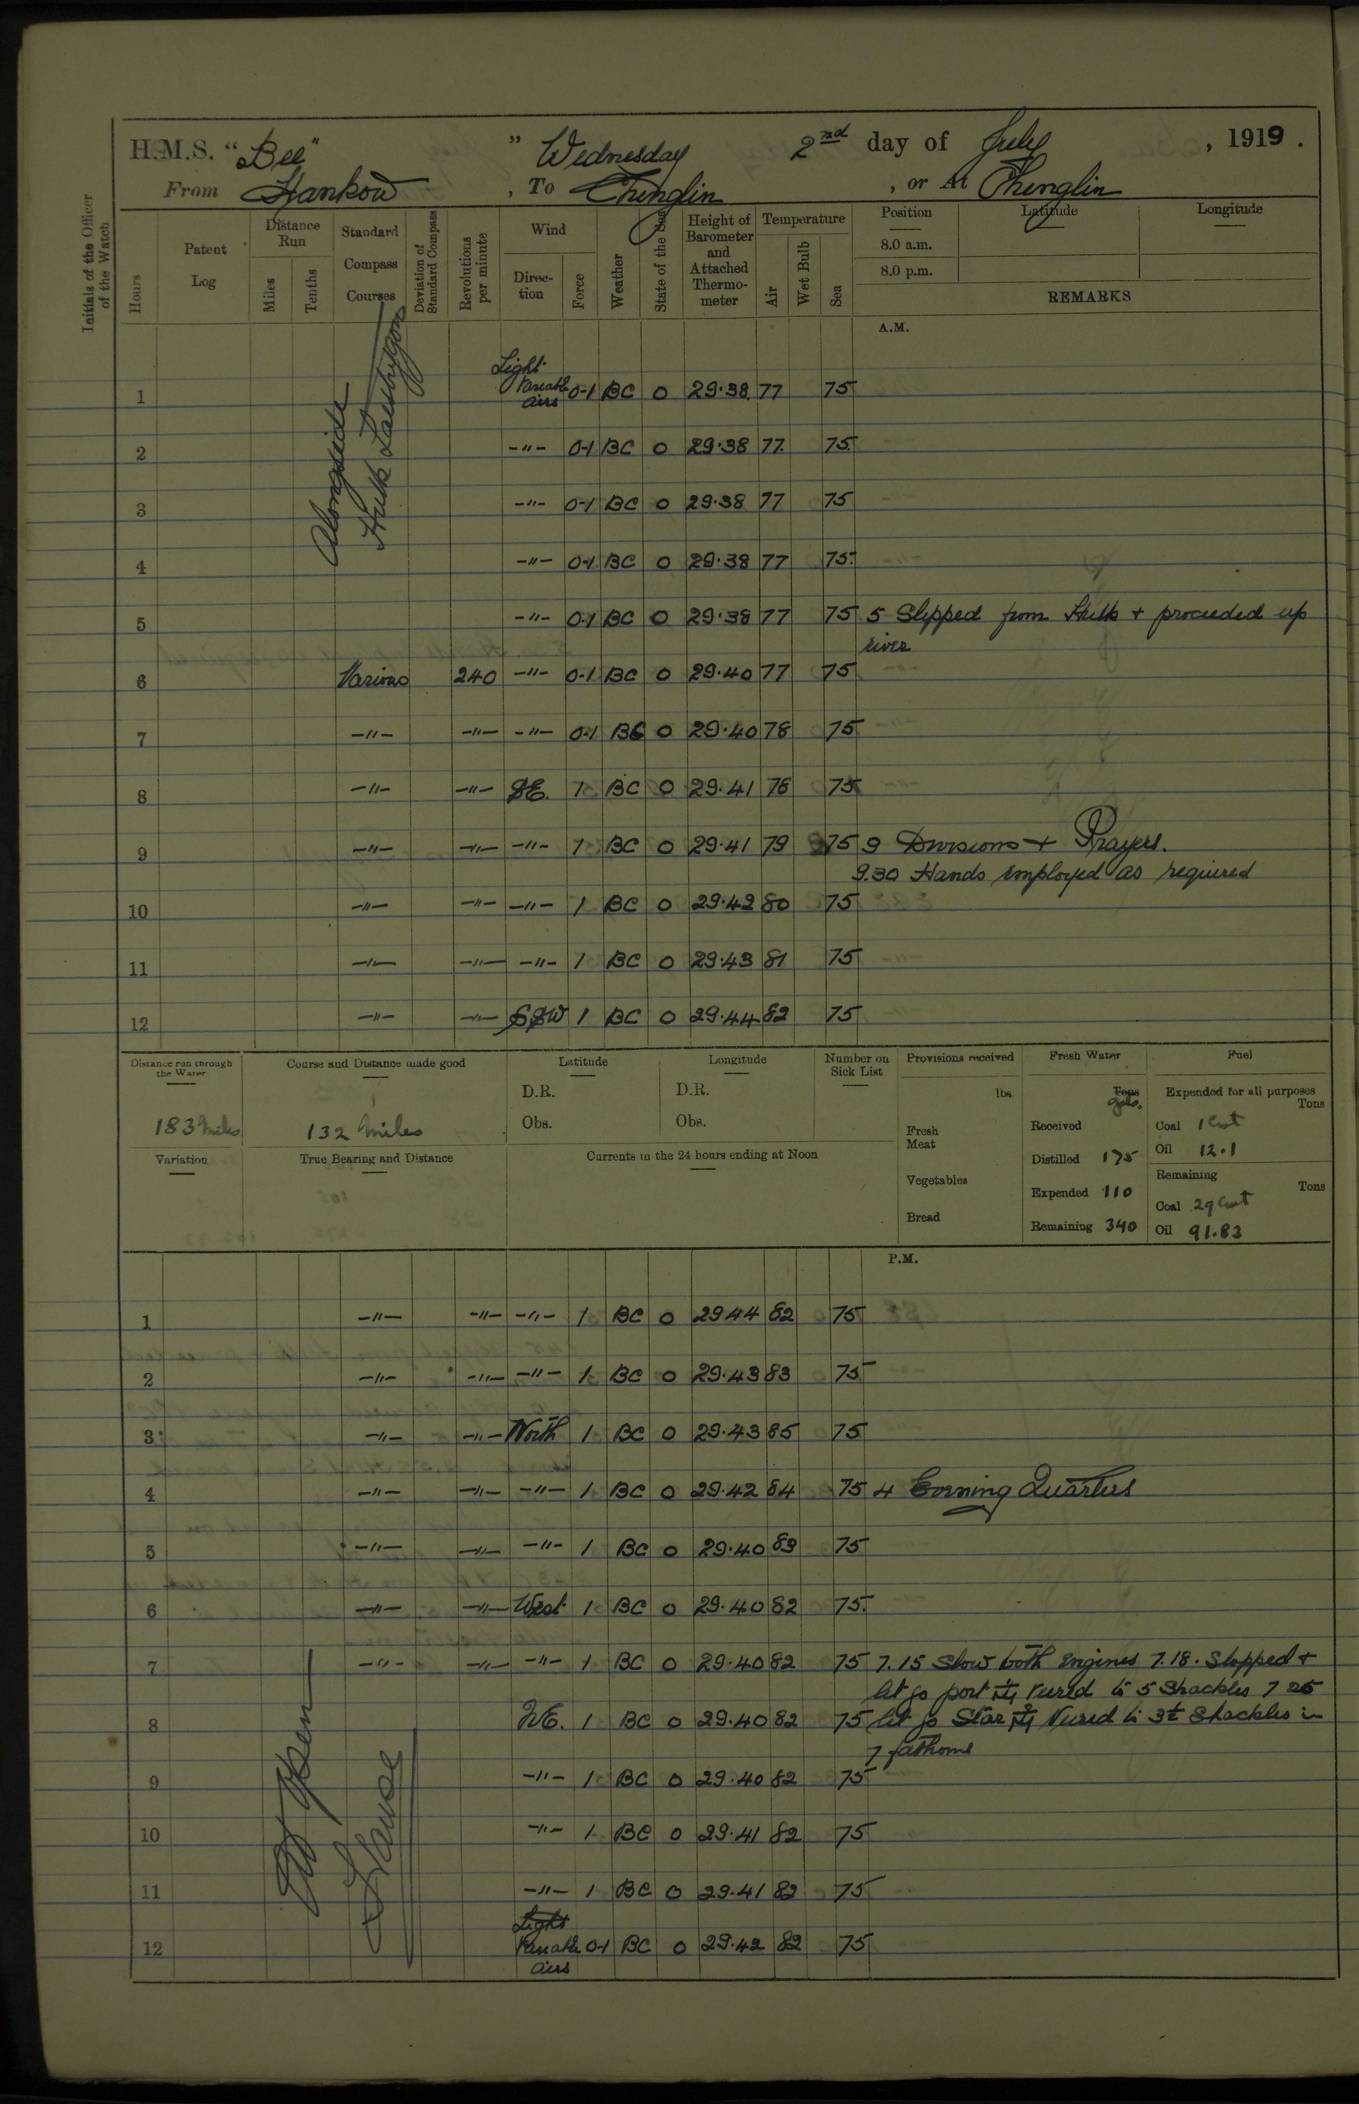 H.M.S. "Bee" " Wednesday 2nd day of July, 1919.
From Hankow, To Chenglin, or At Chenglin
Initials of the Officer of the Watch
Hours
Patent Log
Distance Run
Miles
Tenths
Standard Compass Courses
Deviation of Standard Compass
Revolutions per minute
Wind
Direction
Force
Weather
State of the Sea
Height of Barometer and Attached Thermometer
Temperature
Air
Wet Bulb
Sea
Position
8.0 a.m.
8.0 p.m.
Latitude
Longitude
REMARKS
A.M.
Alongside
Hulk
1 Light Variable airs 0-1 BC 0 29.38 77 75
2 -"- 0-1 BC 0 29.38 77 75
3 -"- 0-1 BC 0 29.38 77 75
4 -"- 0-1 BC 0 29.38 77 75
5 -"- 0-1 BC 0 29.38 77 75 5 Slipped from Hulk + proceeded up
river
6 Various 240 -"- 0-1 BC 0 29.40 77 75
7 -"- -"- -"- 0-1 BC 0 29.40 78 75
8 -"- -"- SE. 1 BC 0 29.41 78 75
9 -"- -"- -"- 1 BC 0 29.41 79 75 9 Divisions + Prayers.
9.30 Hands employed as required
10 -"- -"- -"- 1 BC 0 29.42 80 75
11 -"- -"- -"- 1 BC 0 29.43 81 75
12 -"- -"- SSW 1 BC 0 29.44 82 75
Distance run through the Water
183 miles
Course and Distance made good
132 miles
Latitude
D.R.
Obs.
Longitude
D.R.
Obs.
Number on Sick List
Variation
True Bearing and Distance
Currents in the 24 hours ending at Noon
Provisions received
lbs
Fresh Meat
Vegetables
Bread
Fresh Water
Tons
gals.
Received
Distilled 175
Expended 110
Remaining 340
Fuel
Expended for all purposes
Tons
Coal 1 cwt
Oil 12.1
Remaining
Tons
Coal 29 cwt
Oil 91.82
P.M.
1 -"- -"- -"- 1 BC 0 29.44 82 75
2 -"- -"- -"- 1 BC 0 29.43 83 75
3 -"- -"- North 1 BC 0 29.43 85 75
4 -"- -"- -"- 1 BC 0 29.42 84 75 4 Evening Quarters
5 -"- -"- -"- 1 BC 0 29.40 83 75
6 -"- -"- West 1 BC 0 29.40 82 75
7 -"- -"- -"- 1 BC 0 29.40 82 75 7.15 Slow both Engines 7.18. Stopped +
let go port veered to 5 Shackles 7 25
8 NE. 1 BC 0 29.40 82 75 let go Star Veered to 3½ Shackles in
7 fathoms
9 -"- 1 BC 0 29.40 82 75
10 -"- 1 BC 0 29.41 82 75
11 -"- 1 BC 0 29.41 82 75
12 Light Variable airs 0-1 BC 0 29.42 82 75
At Open
Hawse